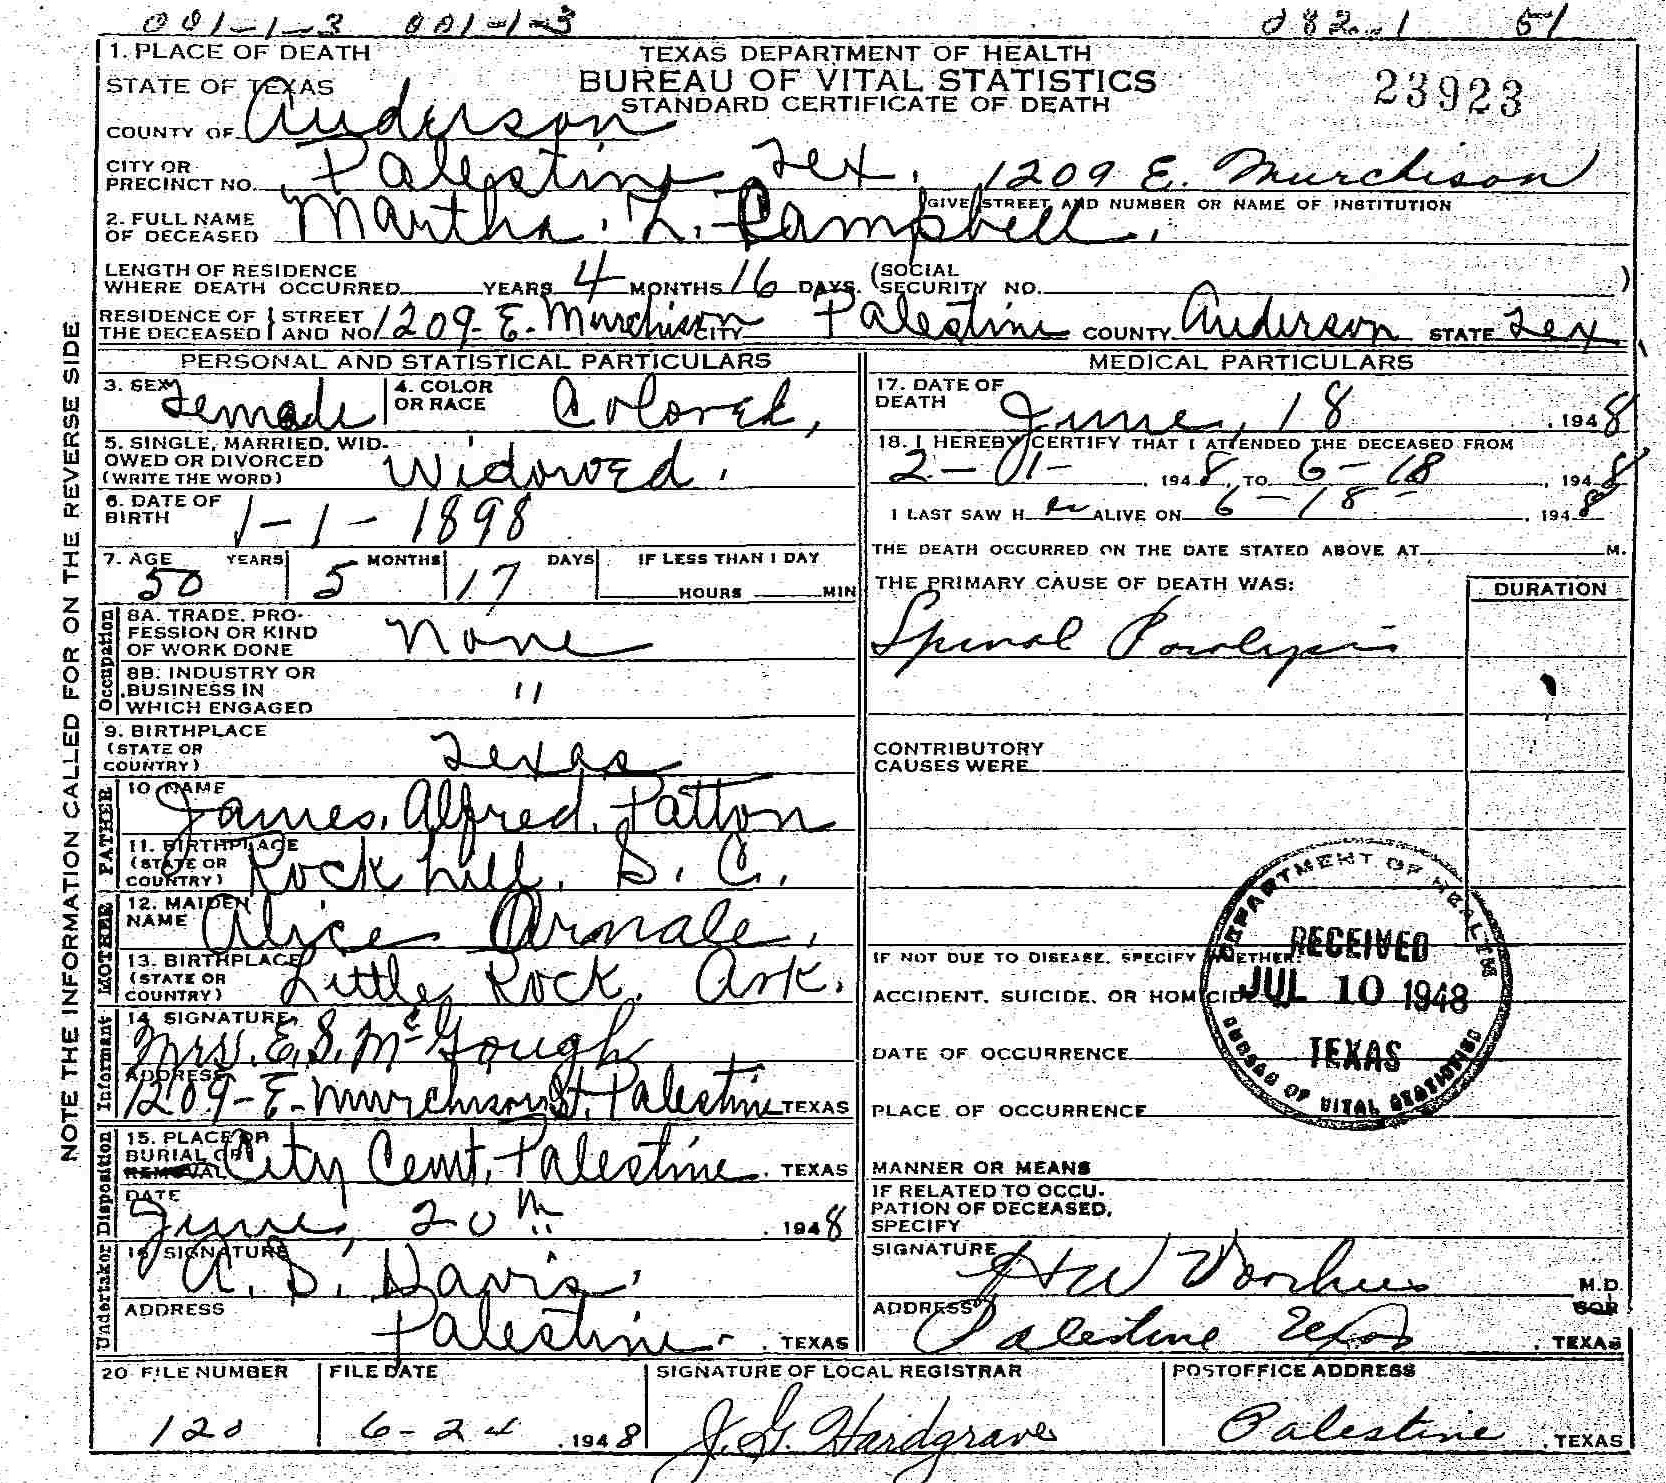 001-1-3 001-1-3 082-1 51
1. PLACE OF DEATH
STATE OF TEXAS
COUNTY OF Anderson
TEXAS DEPARTMENT OF HEALTH
BUREAU OF VITAL STATISTICS
STANDARD CERTIFICATE OF DEATH
23923
CITY OR
PRECINCT NO. Palestine Tex. 1209 E. Murchison
GIVE STREET AND NUMBER OR NAME OF INSTITUTION
2. FULL NAME
OF DECEASED Martha. L. Campbell.
LENGTH OF RESIDENCE
WHERE DEATH OCCURRED YEARS 4 MONTHS 16 DAYS. (SOCIAL
SECURITY NO. )
RESIDENCE OF THE DECEASED { STREET AND NO. 1209-E. Murchison CITY Palestine COUNTY Anderson STATE Tex.
NOTE THE INFORMATION CALLED FOR ON THE REVERSE SIDE
PERSONAL AND STATISTICAL PARTICULARS
3. SEX Female
4. COLOR
OR RACE Colored,
5. SINGLE, MARRIED, WID-
OWED OR DIVORCED
(WRITE THE WORD) Widowed.
6. DATE OF
BIRTH 1-1-1898
7. AGE YEARS MONTHS DAYS IF LESS THAN 1 DAY
50 5 17 HOURS MIN
Occupation
8A. TRADE, PRO-
FESSION OR KIND
OF WORK DONE None
8B. INDUSTRY OR
BUSINESS IN
WHICH ENGAGED "
9. BIRTHPLACE
(STATE OR
COUNTRY) Texas
FATHER
10 NAME
James. Alfred. Patton
11. BIRTHPLACE
(STATE OR
COUNTRY) Rock hill. S. C.
MOTHER
12. MAIDEN
NAME Alice Armale.
13. BIRTHPLACE
(STATE OR
COUNTRY) Little Rock. Ark.
Informant
14. SIGNATURE
Mrs. E. S. McGough
ADDRESS
1209-E-Murchison St, Palestine TEXAS
Disposition
15. PLACE OF
BURIAL OR
REMOVAL City Cemt, Palestine. TEXAS
DATE
June, 20th 1948
Undertaker
16. SIGNATURE
A. D. Davis,
ADDRESS
Palestine. TEXAS
MEDICAL PARTICULARS
17. DATE OF
DEATH June, 18 , 1948
18. I HEREBY CERTIFY THAT I ATTENDED THE DECEASED FROM
2-01- , 1948, TO 6-18 , 1948
I LAST SAW H er ALIVE ON 6-18- , 1948
THE DEATH OCCURRED ON THE DATE STATED ABOVE AT M.
THE PRIMARY CAUSE OF DEATH WAS: DURATION
Spinal Paralysis
CONTRIBUTORY
CAUSES WERE
IF NOT DUE TO DISEASE, SPECIFY WHETHER:
ACCIDENT, SUICIDE, OR HOMICIDE
DATE OF OCCURRENCE
PLACE OF OCCURRENCE
DEPARTMENT OF HEALTH
RECEIVED
JUL 10 1948
TEXAS
BUREAU OF VITAL STATISTICS
MANNER OR MEANS
IF RELATED TO OCCU-
PATION OF DECEASED,
SPECIFY
SIGNATURE H W Voorhies M.D
ADDRESS Palestine Texas , TEXAS
20 FILE NUMBER FILE DATE SIGNATURE OF LOCAL REGISTRAR POSTOFFICE ADDRESS
120 6-24 , 1948 J. G. Hardgrave Palestine , TEXAS